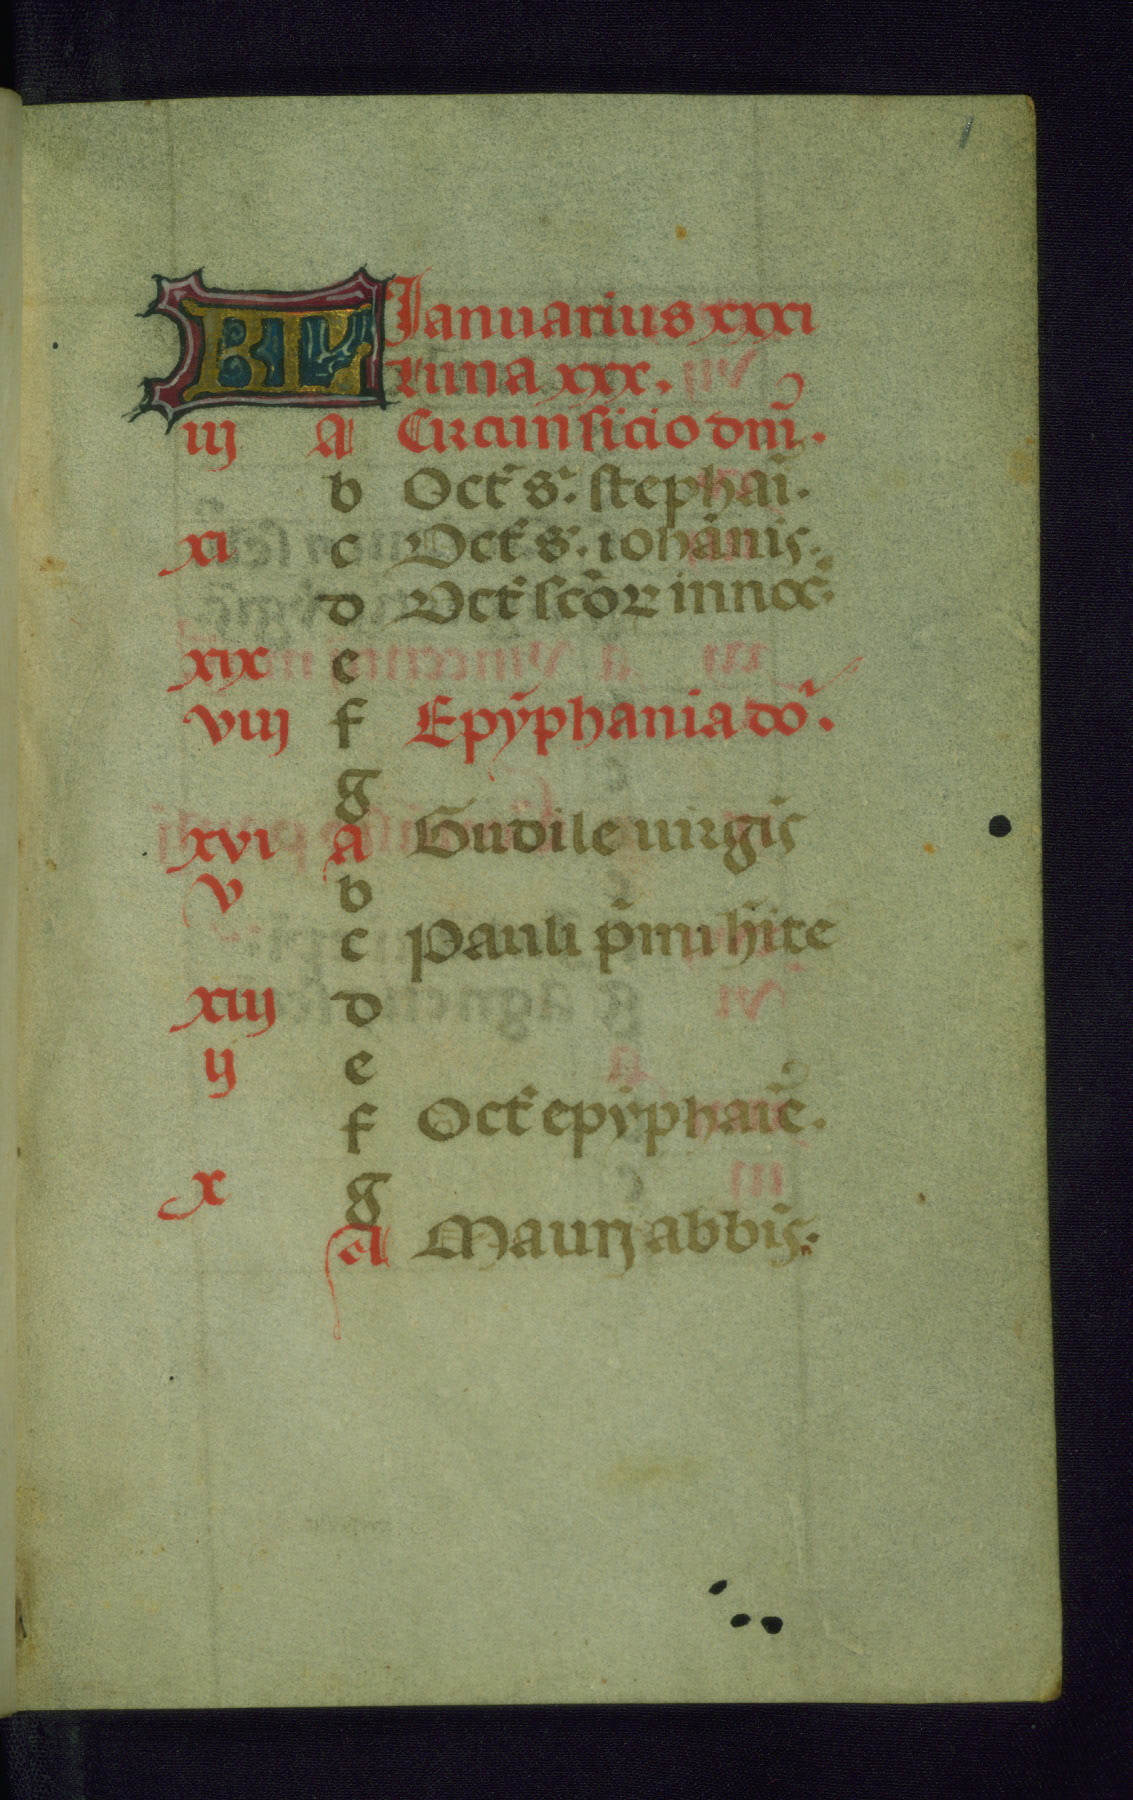 1
KL Ianuarius xxxi
Luna xxx.
iij A Circumsicio dnī.
b Oct̄ s. stephaī.
xi c Oct̄ s. iohānis.
d Oct̄ scōr innoc̄
xix e
viij f Epȳphania do.
g
xvi A Gudile uirgis̄
v b
c Pauli p̄mi h̄ite
xiij d
ij e
f Oct̄ epȳphaiē.
x g
A Maurj abbis̄.